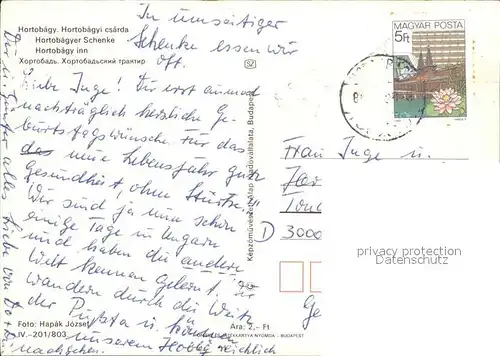 Hortobágy. Hortobágyi csárda
Hortobágyer Schenke
Hortobágy inn
Хортобадь. Хортобадьский трактир
In umseitiger
Schenke essen wir
oft.
Liebe Inge! Für erst einmal
nachträglich herzliche Ge-
burtstagswünsche. Für das
neue Lebensjahr gute
Gesundheit, ohne Stürze!!
Wir sind ja nun schon
einige Tage in Ungarn
und haben die andere
Welt kennen gelernt. Wir
wandern durch die Weite
der Puszta u. können
unserem Hobby reichlich
nachgehen.
alles Liebe von
Képzőművészeti Alap Kiadóvállalata, Budapest
MAGYAR POSTA
5Ft
Frau Inge u.
D 3000
privacy protection
Oldthing.com
Foto: Hapák József
IV.-201/803
Ara: 2,- Ft
KÉPZŐMŰVÉSZETI NYOMDA - BUDAPEST